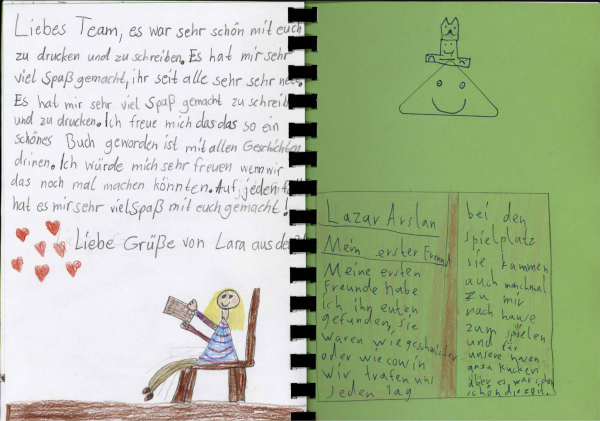 Liebes Team, es war sehr schön mit euch
zu drucken und zu schreiben. Es hat mir sehr
viel Spaß gemacht, ihr seit alle sehr sehr
Es hat mir sehr viel Spaß gemacht zu
und zu drucken. Ich freue mich das das so ein
schönes Buch geworden ist mit allen Geschichten
drinen. Ich würde mich sehr freuen wenn wir
das noch mal machen könnten. Auf jeden
hat es mir sehr viel Spaß mit euch gemacht!
Liebe Grüße von Lara aus
Lazar Arslan
Mein erster Freund
Meine ersten
Freunde habe
ich
gefunden, sie
waren wie
oder wie
wir trafen uns
Jeden Tag
bei den
spielplatz
sie kammen
auch manchmal
zu mir
nach hause
zum spielen
und
unsere
kucken
aber es war